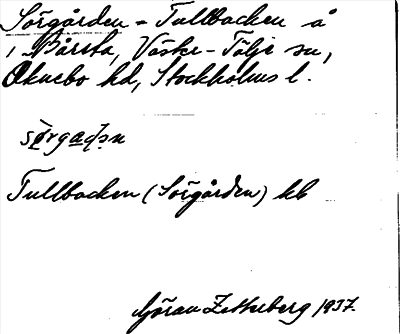 Sörgården = Tullbacken å
i Bårsta, Väster-Tälje sn,
Öknebo hd, Stockholms l.
sö̀rgaḍən
Tullbacken (Sörgården) hb
Göran Zetterberg 1937.